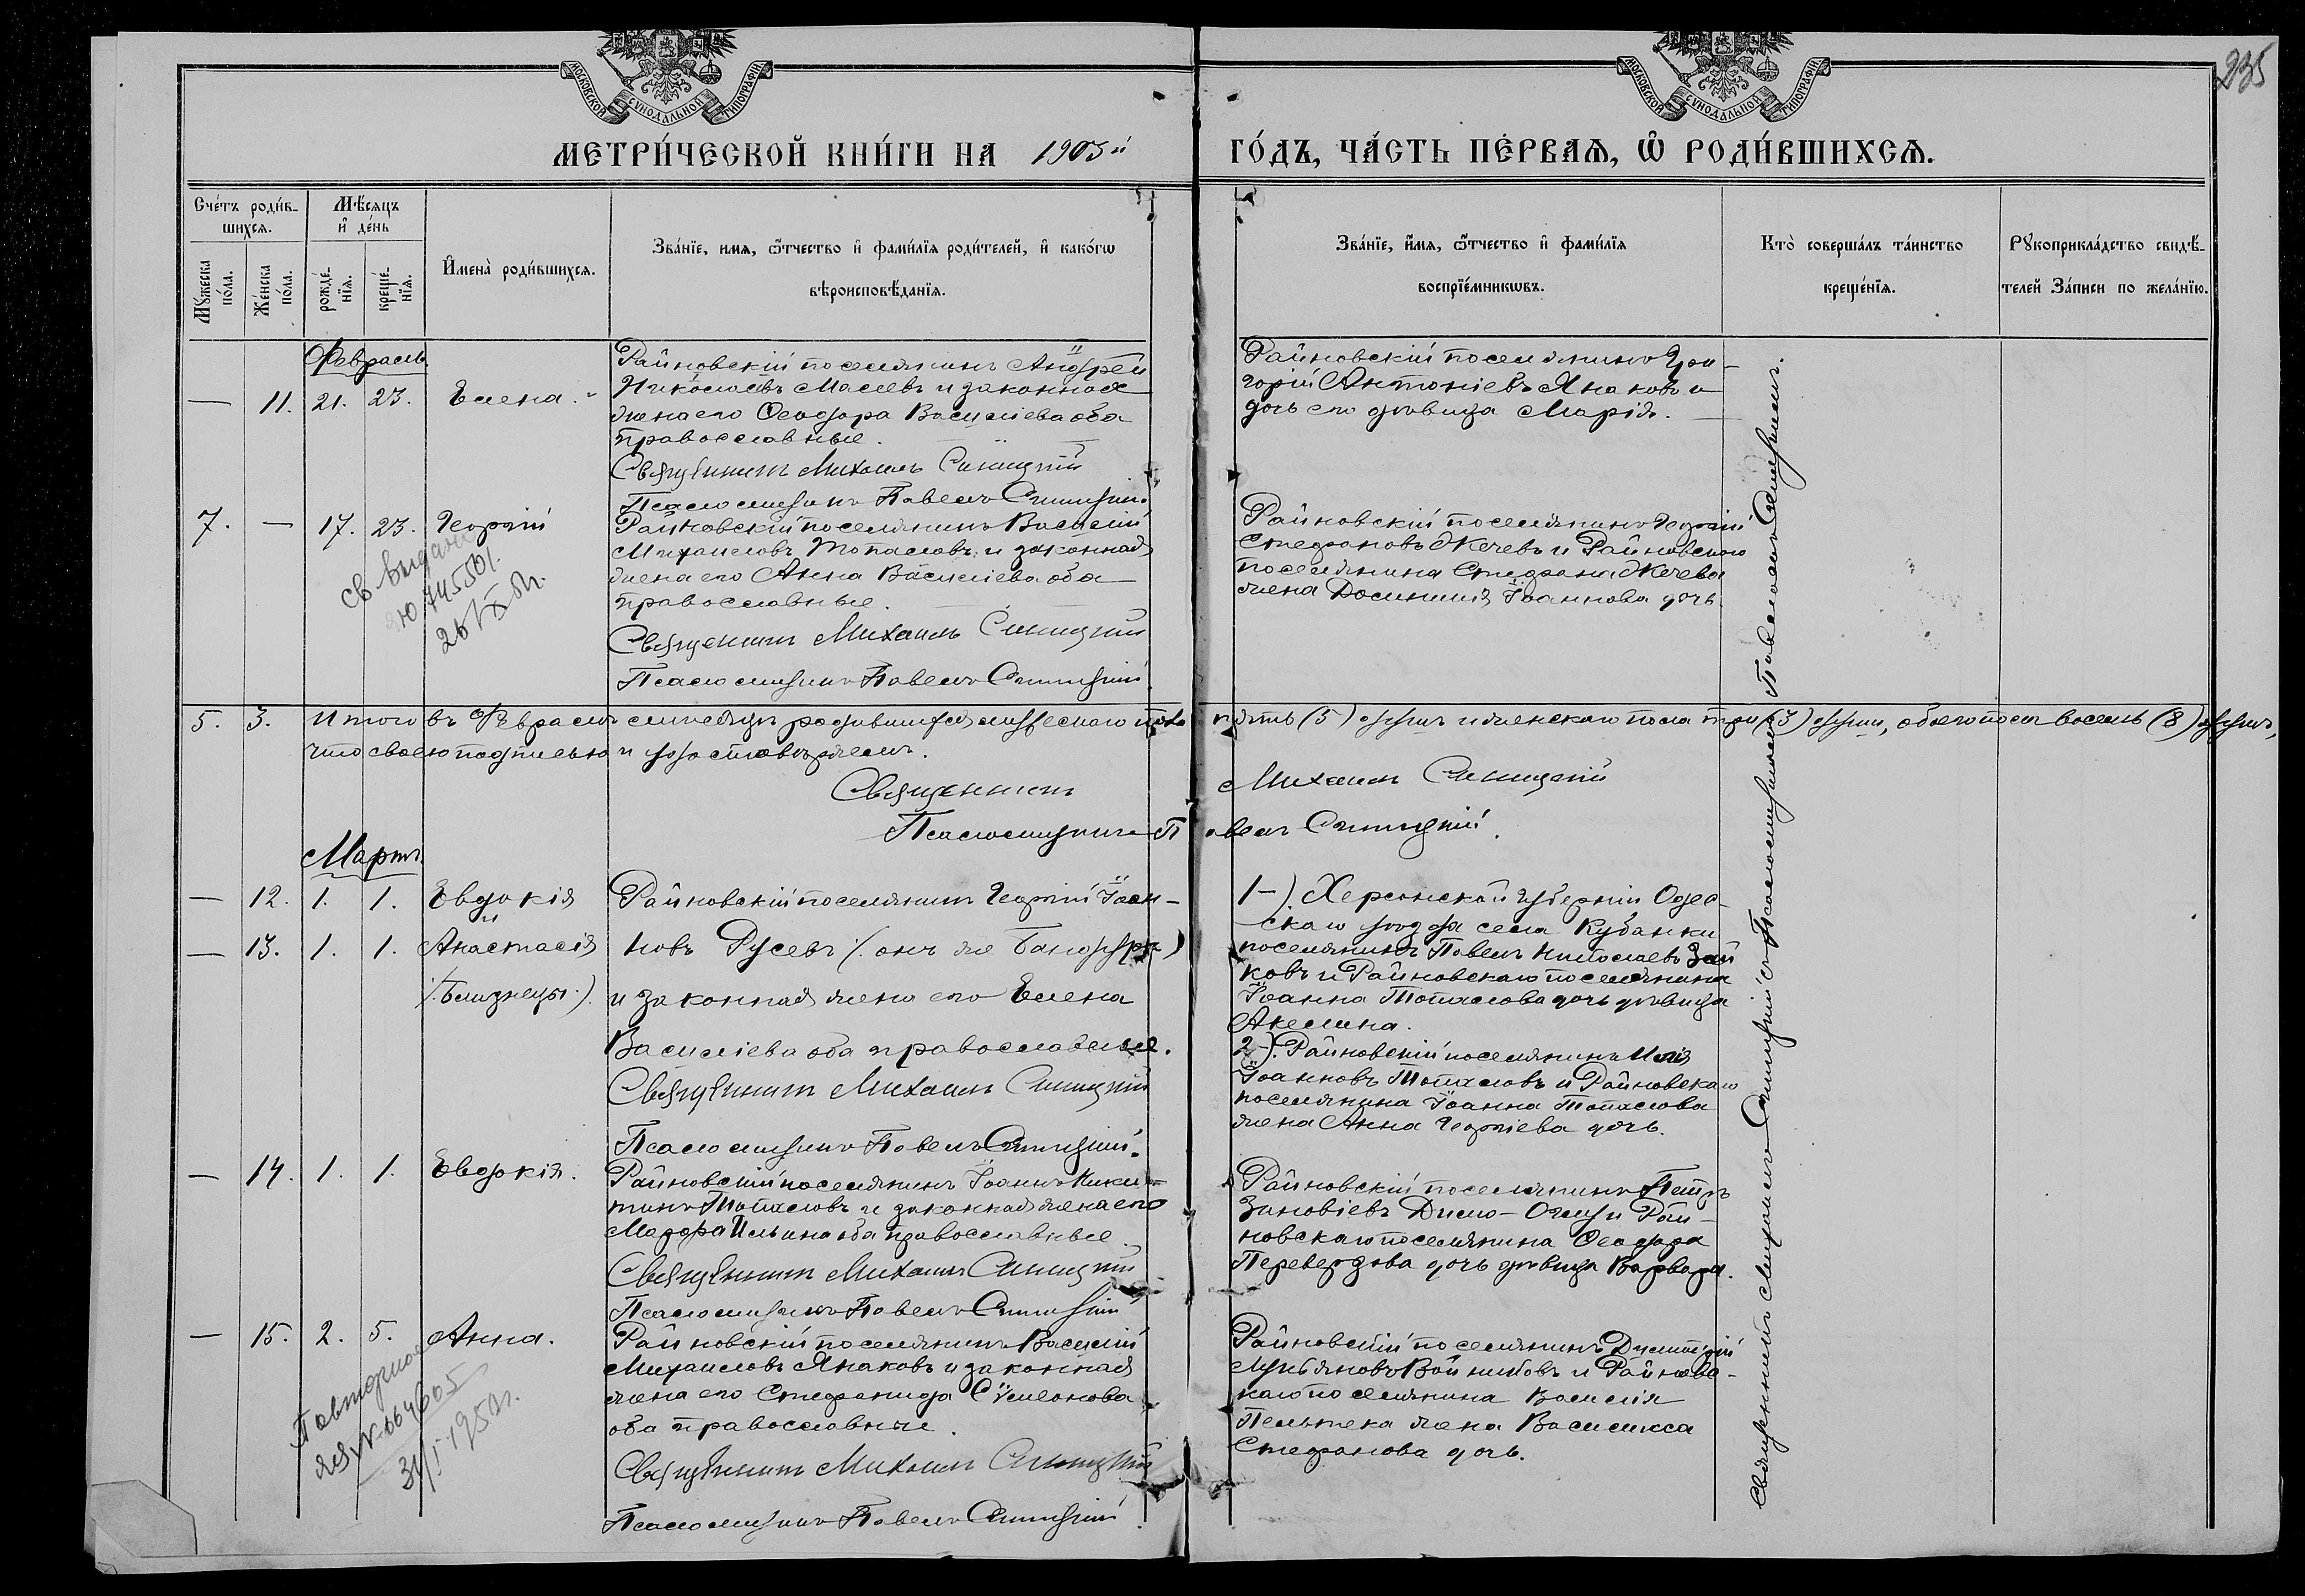 МОСКОВСКОЙ СУНОДАЛЬНОЙ ТИПОГРАФІИ
МОСКОВСКОЙ СУНОДАЛЬНОЙ ТИПОГРАФІИ
235
МЕТРИ́ЧЕСКОЙ КНИ́ГИ НА 1905й
ГО́ДЪ, ЧА́СТЬ ПЕ́РВАѦ, Ѡ РОДИ́ВШИХСѦ.
Сче́тъ роди́в-
шихсѧ.
Мꙋжеска по́ла.
Же́нска по́ла.
Мѣ́сѧцъ
и҆ де́нь
рожде́-
нїѧ.
креще́-
нїѧ.
И҆мена̀ роди́вшихсѧ.
Зва́нїе, имѧ, ѻ҆́тчество и҆ фами́лїѧ роди́телей, и҆ како́гѡ
вѣроисповѣ́данїѧ.
Зва́нїе, и҆́мѧ, ѻ҆́тчество и҆ фами́лїѧ
воспрїе́мникѡвъ.
Кто̀ соверша́лъ та́инство
креще́нїѧ.
Рꙋкоприкла́дство свидѣ́-
телей За́писи по жела́нїю.
Февраль.
— 11. 21. 23. Елена.
Райновскій поселянинъ Андрей
Николаевъ Малевъ и законная
жена его Ѳеодора Василіева оба
православные.
Священникъ Михаилъ Синицкій
Псаломщикъ Павелъ
Райновскій поселянинъ Гри-
горій Антоніевъ Янаковъ и
дочь его дѣвица Марія.
7. — 17. 23. Георгій
св. выдано
яю 745501.
Райновскій поселянинъ Василій
Михаиловъ Топаловъ и законная
жена его Анна Василіева оба
православные.
Священникъ Михаилъ Синицкій
Псаломщикъ Павелъ
Райновскій поселянинъ Георгій
Стефановъ Жечевъ и Райновскаго
поселянина Стефана Жечева
жена Іоаннова дочь.
5. 3. Итого въ Февралѣ мѣсяцѣ родившихся мужескаго пола пять (5) душъ и женскаго пола три (3) души, обоего пола восемь (8) душъ,
что своею подписью и удостовѣряемъ.
Священникъ Михаилъ Синицкій
Псаломщикъ Павелъ
Мартъ.
— 12. 1. 1. Евдокія
и
— 13. 1. 1. Анастасія
(Близнецы.)
Райновскій поселянинъ Георгій Іоан-
новъ Русевъ (онъ же Бандуръ)
и законная жена его Елена
Василіева оба православные.
Священникъ Михаилъ Синицкій
Псаломщикъ Павелъ
1-). Херсонской губерніи Одес-
скаго уѣзда села Кубанки
поселянинъ Павелъ Николаевъ Зай
ковъ и Райновскаго поселянина
Іоанна Топалова дочь дѣвица
Акелина.
2-). Райновскій поселянинъ Илія
Іоанновъ Топаловъ и Райновскаго
поселянина Іоанна Топалова
жена Анна Георгіева дочь.
— 14. 1. 1. Евдокія.
Райновскій поселянинъ Іоаннъ Ники-
тинъ Топаловъ и законная жена его
Ильина оба православные.
Священникъ Михаилъ Синицкій
Псаломщикъ Павелъ
Райновскій поселянинъ Петръ
Зиновіевъ и Рай-
новскаго поселянина Ѳеодора
дочь дѣвица Варвара.
— 15. 2. 5. Анна.
Повторное
яя № 064605
31/I 1950г.
Райновскій поселянинъ Василій
Михаиловъ Янаковъ и законная
жена его Стефанида Сѵмеонова
оба православные.
Священникъ Михаилъ Синицкій
Псаломщикъ Павелъ
Райновскій поселянинъ Димитрій
Лукьяновъ Войниковъ и Райновс-
каго поселянина Василія
Пельтека жена Василисса
Стефанова дочь.
Священникъ Михаилъ Синицкій съ Псаломщикомъ Павломъ